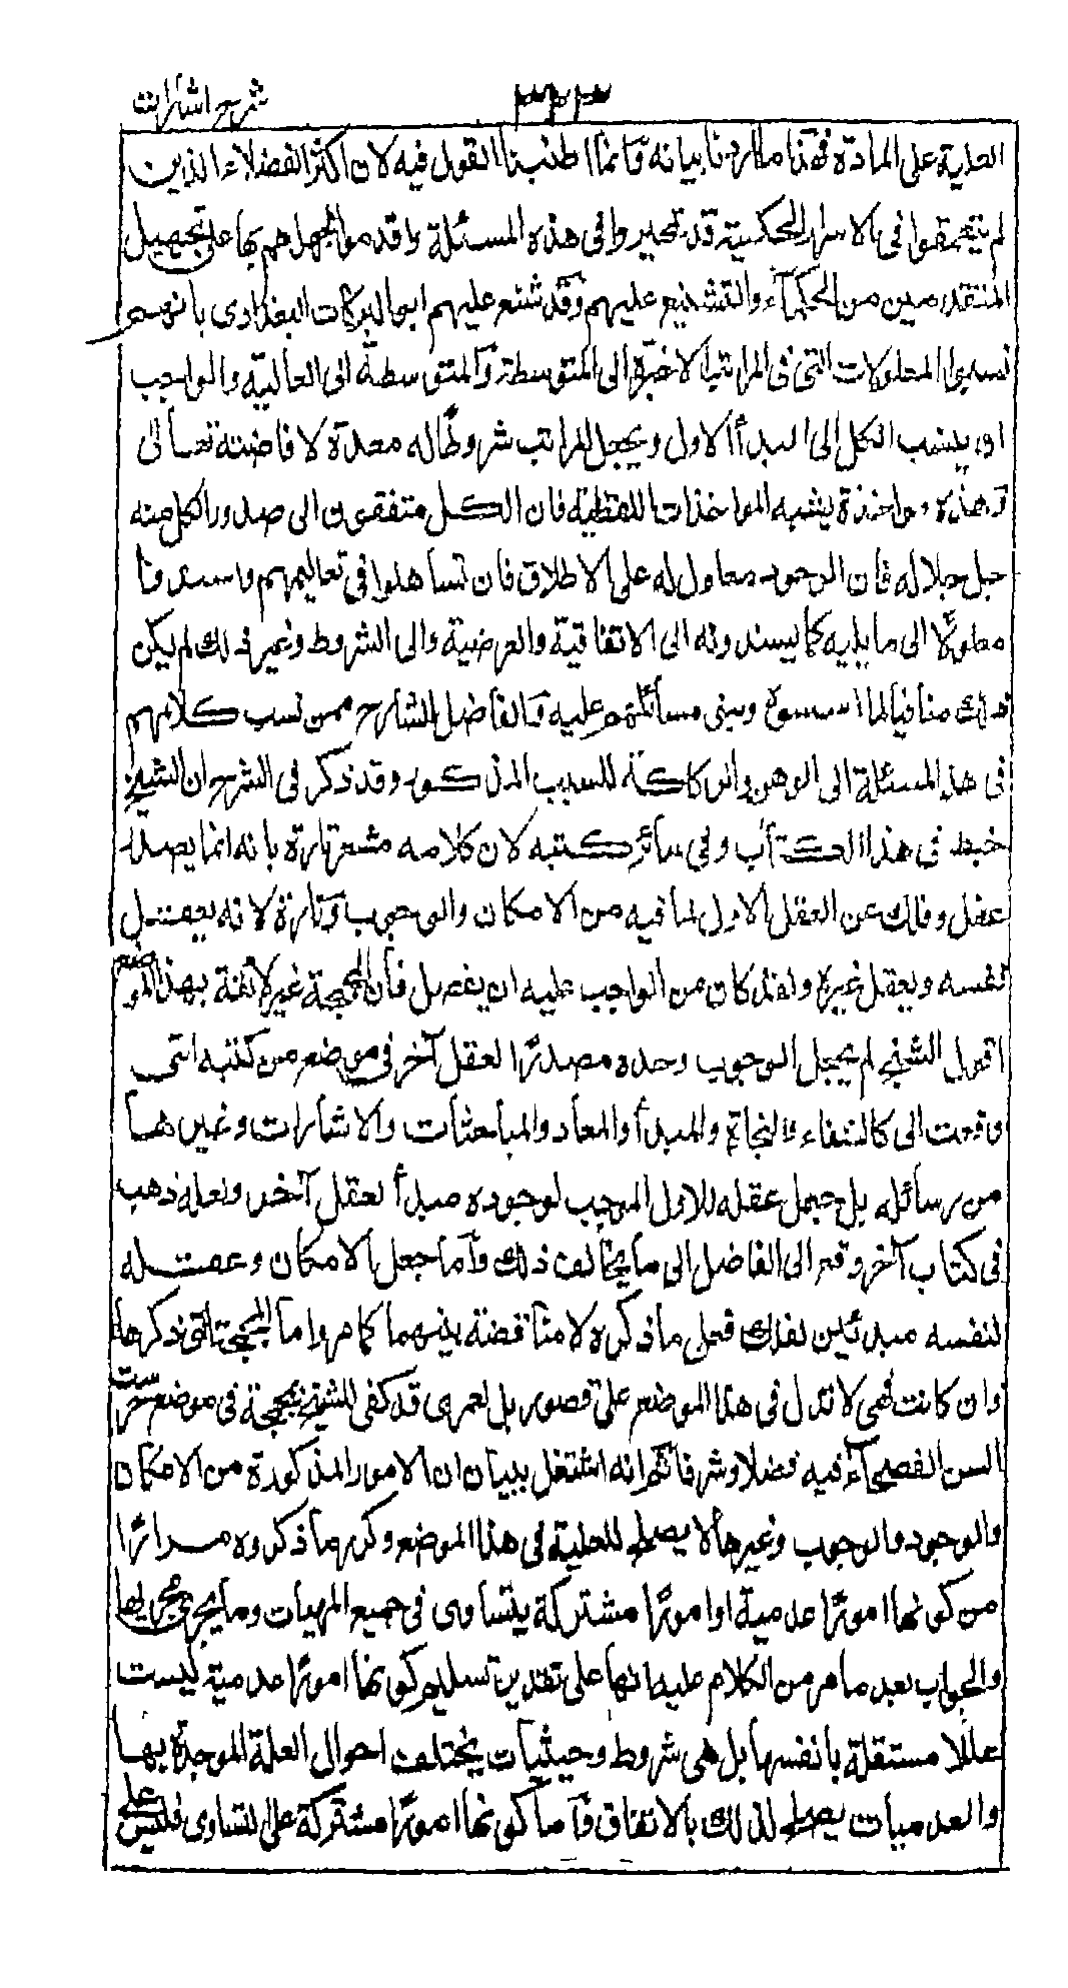 شرح اشارات
٣٤٣
العلية على المادة فهذا ما اردنا بيانه وانما اطنبنا القول فيه لان اكثر الفضلاء الذين
لم يتعمقوا فى الاسرار الحكمية قد تحيروا فى هذه المسئلة واقدموا لجهلهم بها على تجهيل
المتقدمين من الحكماء والتشنيع عليهم وقد شنع عليهم ابو البركات البغدادى بانهم
نسبوا المعلولات التى فى المراتب الاخيرة الى المتوسطة والمتوسطة الى العالية والواجب
ان ينسب الكل الى المبدأ الاول ويجعل المراتب شروطا له معدة لافاضته تعالى
وهذه مواخذة يشبه المواخذات اللفظية فان الكل متفقون الى صدور الكل منه
جل جلاله فان الوجود معلول له على الاطلاق فان تساهلوا فى تعاليمهم واسندوا
معلولا الى ما يليه كما يسندونه الى الاتفاقية والعرضية والى الشروط وغير ذلك لم يكن
ذلك منافيا لما اسسوه وبنى مسائلهم عليه فالفاضل الشارح ممن نسب كلامهم
فى هذه المسئلة الى الوهن والركاكة للسبب المذكور وقد ذكر فى الشرح ان الشيخ
خبط فى هذا الكتاب وفى سائر كتبه لان كلامه مشعر تارة بانه انما يصدر
عقل وفلك عن العقل الاول لما فيه من الامكان والوجوب وتارة لانه يعقل
نفسه ويعقل غيره ولقد كان من الواجب عليه ان يفصل فان المجمجة غير لائقة بهذا الموضع
اقول الشيخ لم يجعل الوجوب وحده مصدرا لعقل آخر فى موضع من كتبه التى
وقعت الى كالشفاء والنجاة والمبدأ والمعاد والمباحثات والاشارات وغيرها
من رسائله بل جعل عقله للاول الموجب لوجوده مبدأ لعقل آخر ولعله ذهب
فى كتاب آخر وقع الى الفاضل الى ما يخالف ذلك واما جعل الامكان وعقله
لنفسه مبدئين لفلك فعلى ما ذكره لا مناقضة بينهما كما مر واما المجمجة التى ذكرها
وان كانت فهى لا تدل فى هذا الموضع على قصور بل لعمرى قد كفى للشيخ بمجمجة فى موضع خرست
السن الفصحاء فيه فضلا وشرفا ثم انه اشتغل ببيان ان الامور المذكورة من الامكان
والوجود والوجوب وغيرها لا يصلح للعلية فى هذا الموضع وكرر ما ذكروه مرارا
من كونها امورا عدمية او امورا مشتركة يتساوى فى جميع المهيات وما يجرى مجريها
والجواب بعد ما مر من الكلام عليها انها على تقدير تسليم كونها امورا عدمية ليست
عللا مستقلة بانفسها بل هى شروط وحيثيات يختلف احوال العلة الموجدة بها
والعدميات يصلح لذلك بالاتفاق واما كونها امورا مشتركة على التساوى فليس على